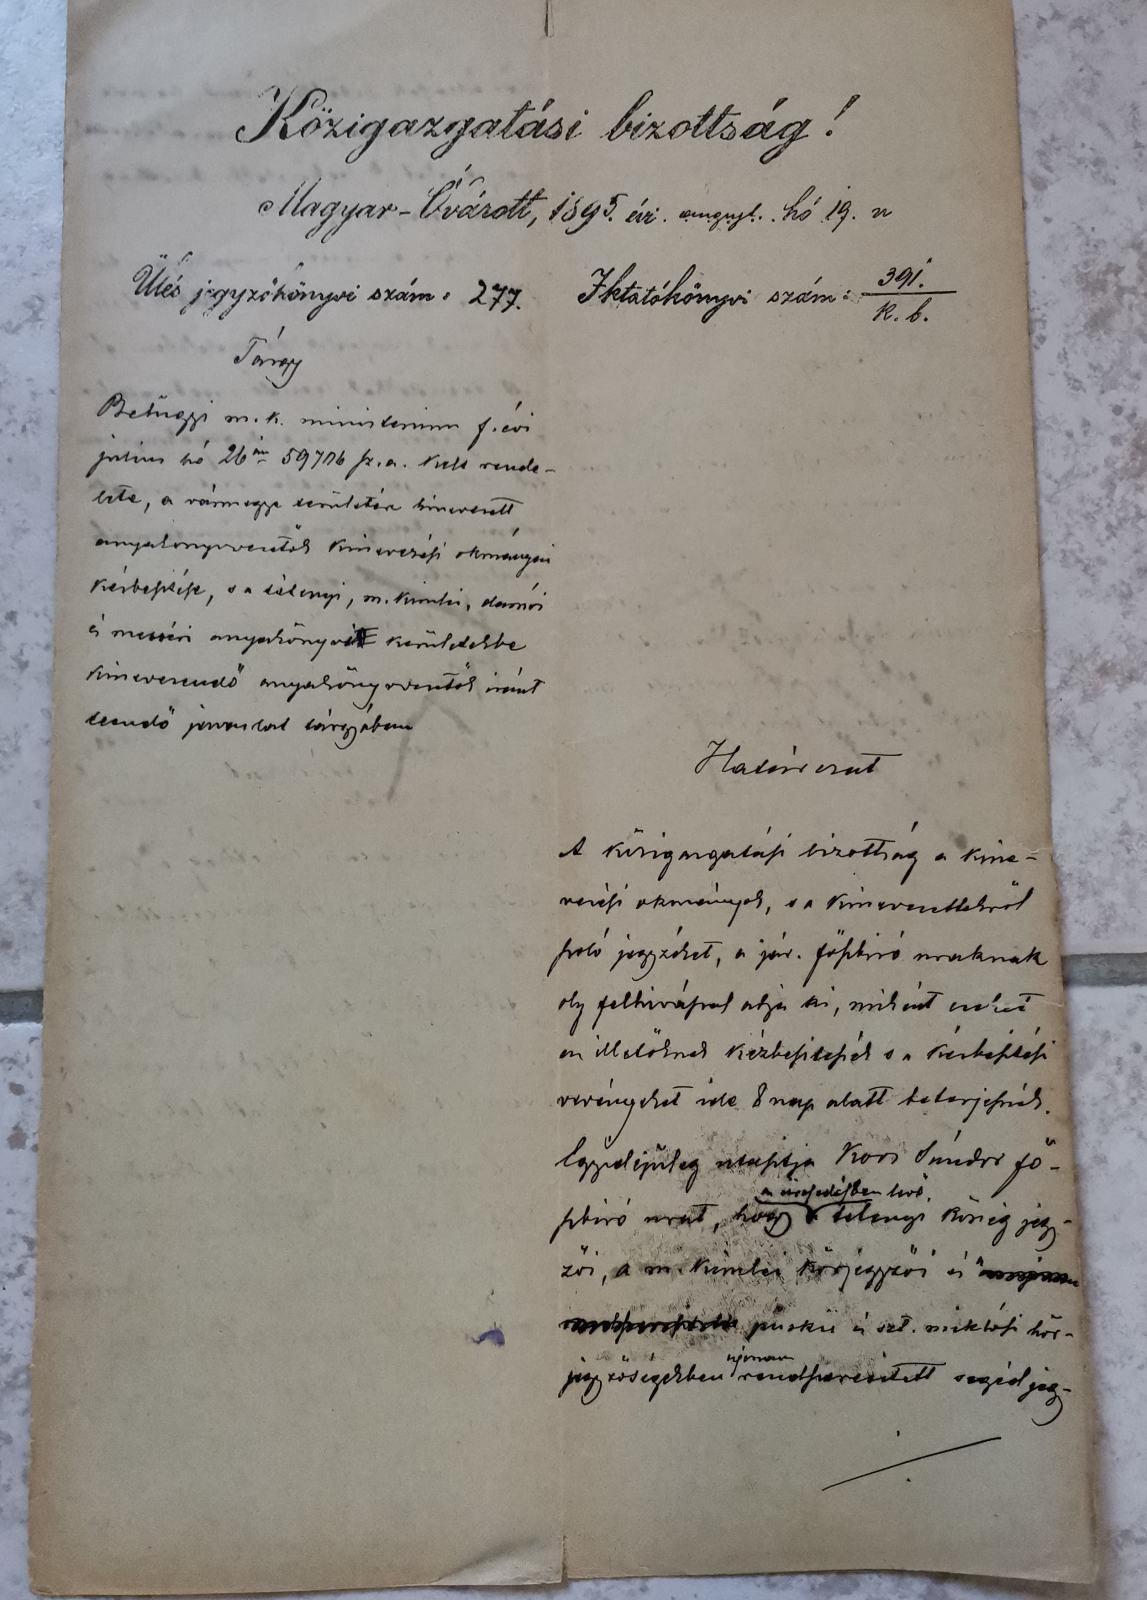 Közigazgatási bizottság!
Magyar-Óvárott, 1895. évi. auguszt. hó 19. n
Ülés jegyzőkönyvi szám: 277.
Iktatókönyvi szám: 391. / K. b.
Tárgy
Belügyi m. k. ministerium f. évi
július hó 26án 59706 sz. a. kelt rende-
lete, a vármegye területén kinevezett
anyakönyvvezetők kinevezési okmányai
kézbesítése, s a tétenyi, m. kimlei, darnói
és mecséri anyakönyvi kerületekbe
kinevezendő anyakönyvvezetők iránt
teendő javaslat tárgyában
Határozat
A közigazgatási bizottság a kine-
vezési okmányok, s a kinevezettekről
szóló jegyzéket, a jár. főszbiró uraknak
oly felhivással adja ki, miként ezeket
az illetőknek kézbesitsék s a kézbesítési
vevényeket ide 8 nap alatt beterjesszék.
Egyidejüleg utasitja Koos Sándor fő-
a üresedésben levő
szbiró urat, hogy tetenyi község jegy-
zői, a m. kimlei körjegyzői és
püskii és szt. miklósi kör-
újonnan
jegyzőségekben rendszeresitett segédjegy-